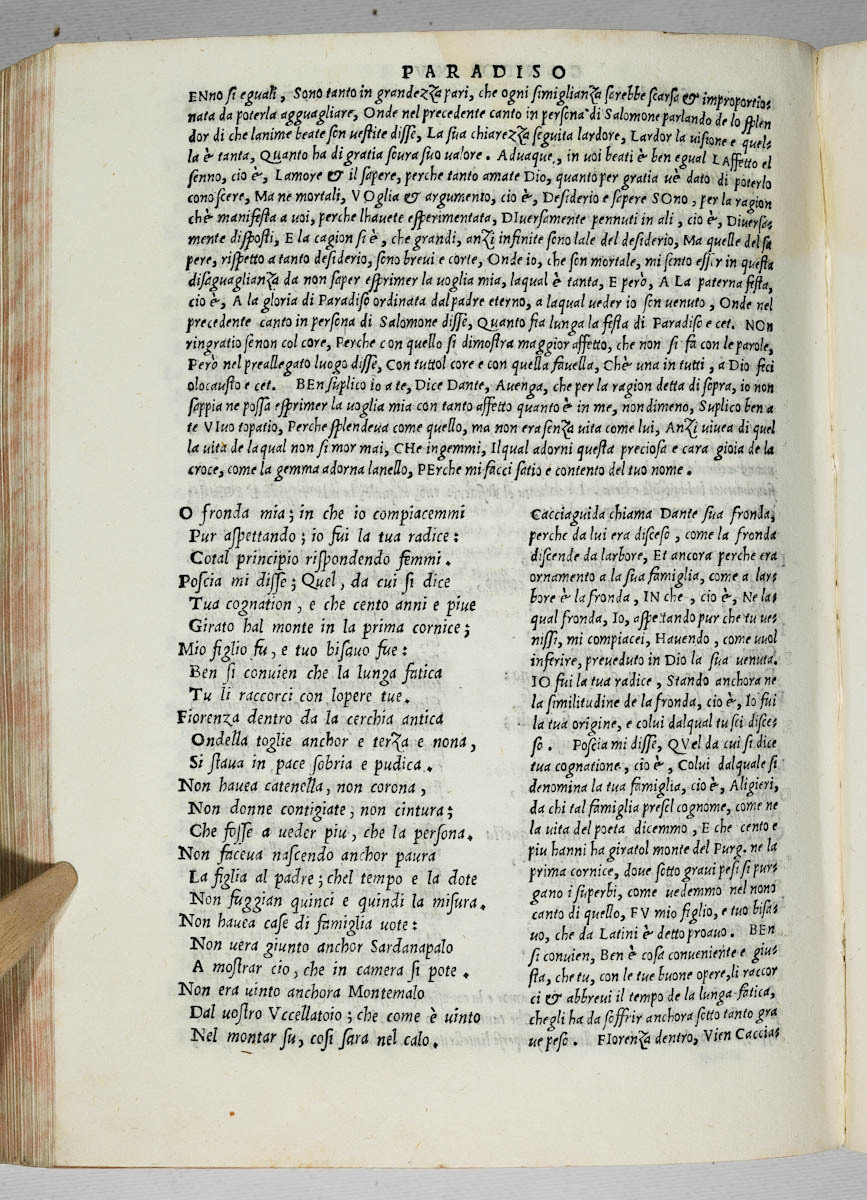 PARADISO
ENno si eguali, Sono tanto in grandezza pari, che ogni simiglianza sarebbe scarsa & improportio-
nata da poterla agguagliare, Onde nel precedente canto in persona di Salomone parlando de lo splen
dor di che lanime beate son uestite disse, La sua chiarezza seguita lardore, Lardor la uisione e quel-
la è tanta, Quanto ha di gratia soura suo ualore. Aduaque, in uoi beati è ben egual LAffetto el
senno, cio è, Lamore & il sapere, perche tanto amate Dio, quanto per gratia uè dato di poterlo
conoscere, Ma ne mortali, VOglia & argumento, cio è, Desiderio e sapere SOno, per la ragion
chè manifesta a uoi, perche lhauete esperimentata, DIuersamente pennuti in ali, cio è, Diuersa-
mente disposti, E la cagion si è, che grandi, anzi infinite sono lale del desiderio, Ma quelle del sa
pere, rispetto a tanto desiderio, sono breui e corte, Onde io, che son mortale, mi sento esser in questa
disaguaglianza da non saper esprimer la uoglia mia, laqual è tanta, E però, A La paterna festa,
cio è, A la gloria di Paradiso ordinata dal padre eterno, a laqual ueder io son uenuto, Onde nel
precedente canto in persona di Salomone disse, Quanto fia lunga la festa di Paradiso e cet. NOn
ringratio senon col core, Perche con quello si dimostra maggior affetto, che non si fa con le parole,
Però nel preallegato luogo disse, Con tuttol core e con quella fauella, Chè una in tutti, a Dio feci
olocausto e cet. BEn suplico io a te, Dice Dante, Auenga, che per la ragion detta di sopra, io non
sappia ne possa esprimer la uoglia mia con tanto affetto quanto è in me, nondimeno, Suplico ben a
te VIuo topatio, Perche splendeua come quello, ma non era senza uita come lui, Anzi uiuea di quel
la uita de la qual non si mor mai, CHe ingemmi, Ilqual adorni questa preciosa e cara gioia de la
croce, come la gemma adorna lanello, PErche mi facci satio e contento del tuo nome.
O fronda mia; in che io compiacemmi
Pur aspettando; io fui la tua radice:
Cotal principio rispondendo femmi.
Poscia mi disse; Quel, da cui si dice
Tua cognation, e che cento anni e piue
Girato hal monte in la prima cornice;
Mio figlio fu, e tuo bisauo fue:
Ben si conuien che la lunga fatica
Tu li raccorci con lopere tue.
Fiorenza dentro da la cerchia antica
Ondella toglie anchor e terza e nona,
Si staua in pace sobria e pudica.
Non hauea catenella, non corona,
Non donne contigiate, non cintura;
Che fosse a ueder piu, che la persona.
Non faceua nascendo anchor paura
La figlia al padre; chel tempo e la dote
Non fuggian quinci e quindi la misura.
Non hauea case di famiglia uote:
Non uera giunto anchor Sardanapalo
A mostrar cio, che in camera si pote.
Non era uinto anchora Montemalo
Dal uostro Vccellatoio; che come è uinto
Nel montar su, cosi sara nel calo.
Cacciaguida chiama Dante sua fronda,
perche da lui era disceso, come la fronda
discende da larbore, Et ancora perche era
ornamento a la sua famiglia, come a lar-
bore è la fronda, IN che, cio è, Ne la-
qual fronda, Io, aspettando pur che tu ue-
nissi, mi compiacei, Hauendo, come uuol
inferire, preueduto in Dio la sua uenuta.
IO fui la tua radice, Stando anchora ne
la similitudine de la fronda, cio è, Io fui
la tua origine, e colui dalqual tu sci disce-
so. Poscia mi disse, QVel da cui si dice
tua cognatione, cio è, Colui dalquale si
denomina la tua famiglia, cio è, Aligieri,
da chi tal famiglia presel cognome, come ne
la uita del poeta dicemmo, E che cento e
piu hanni ha giratol monte del Purg. ne la
prima cornice, doue sotto graui pesi si pur-
gano i superbi, come uedemmo nel nono
canto di quello, FV mio figlio, e tuo bisa-
uo, che da Latini è detto proauo. BEn
si conuien, Ben è cosa conueniente e giu-
sta, che tu, con le tue buone opere, li raccor
ci & abbreui il tempo de la lunga fatica,
chegli ha da soffrir anchora sotto tanto gra
ue peso. FIorenza dentro, Vien Caccia-